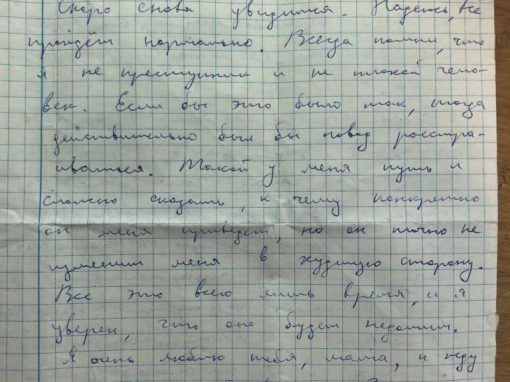 Скоро снова увидимся. Надеюсь, всё
пройдёт нормально. Всегда помни, что
я не преступник и не плохой чело-
век. Если бы это было так, тогда
действительно был бы повод расстра-
иваться. Такой у меня путь и
сложно сказать, к чему конкретно
он меня приведёт, но он точно не
изменит меня в худшую сторону.
Всё это всего лишь время, и я
уверен, что оно будет недолгим.
Я очень люблю тебя, мама, и жду